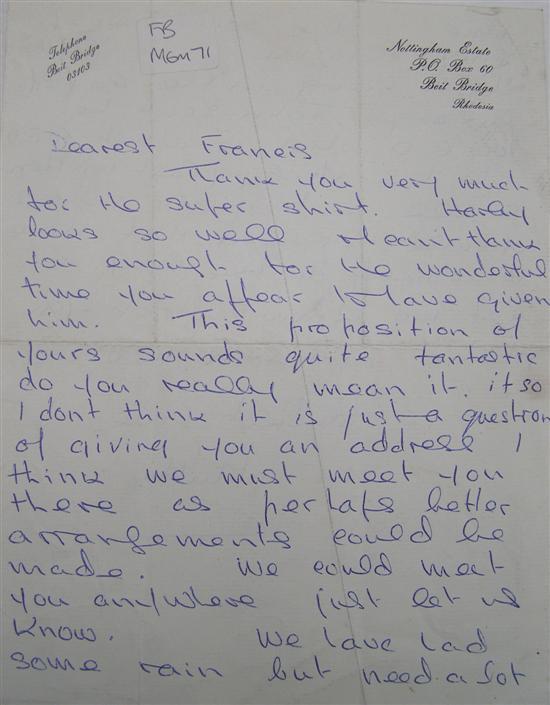 Telephone
Beit Bridge
03103
FB
MGM 71
Nottingham Estate
P.O. Box 60
Beit Bridge
Rhodesia
Dearest Francis
Thank you very much
for the super shirt. Harley
looks so well I can't thank
you enough for the wonderful
time you appear to have given
him. This proposition of
yours sounds quite fantastic
do you really mean it. if so
I dont think it is just a question
of giving you an address I
think we must meet you
there as perhaps better
arrangements could be
made. We could meet
you anywhere just let us
know. We have had
some rain but need a lot